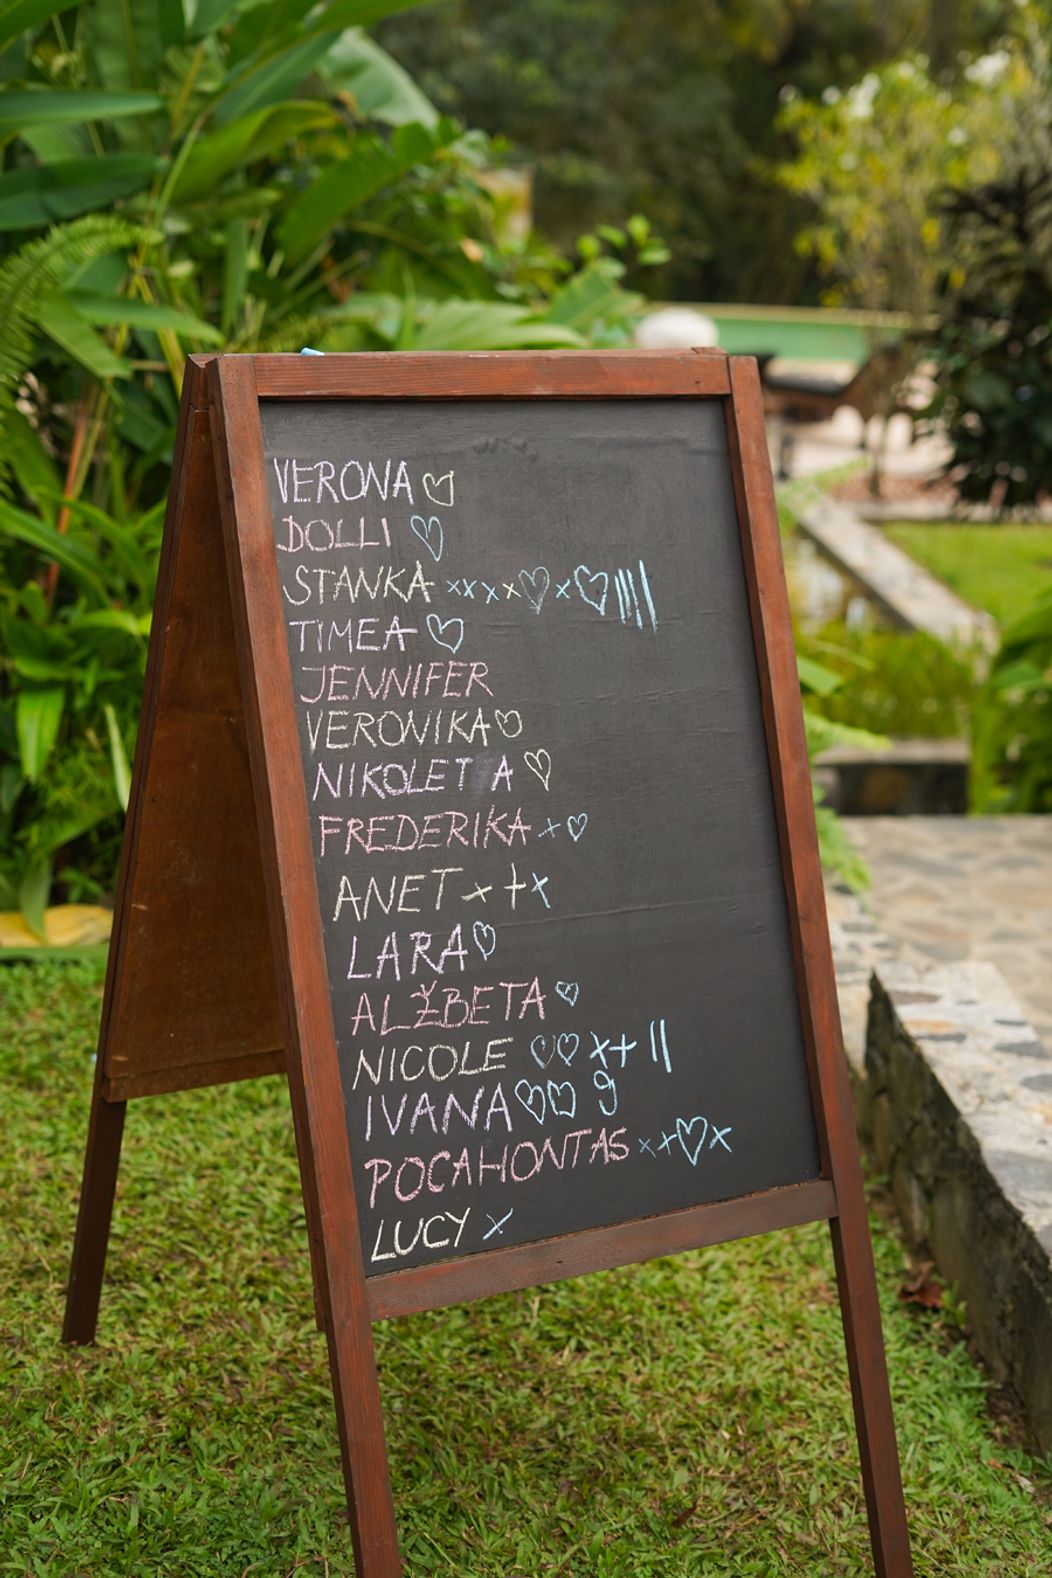 VERONA ♡
DOLLI ♡
STANKA xxxx♡x♡||||
TIMEA ♡
JENNIFER
VERONIKA ♡
NIKOLET A ♡
FREDERIKA +♡
ANET x + x
LARA ♡
ALŽBETA ♡
NICOLE ♡♡ x+ ||
IVANA ♡♡ 9
POCAHONTAS x+♡x
LUCY x